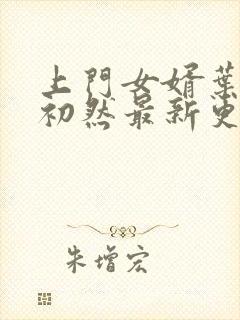 上門女婿葉
初然最新更
朱增宏